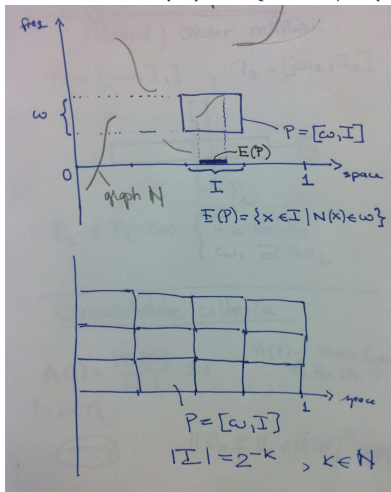 freq
ω
P = [ω, I]
E(P)
0
I
1
space
graph N
E(P) = {x ∈ I | N(x) ∈ ω}
1
space
P = [ω, I]
|I| = 2^{-k} , k ∈ N